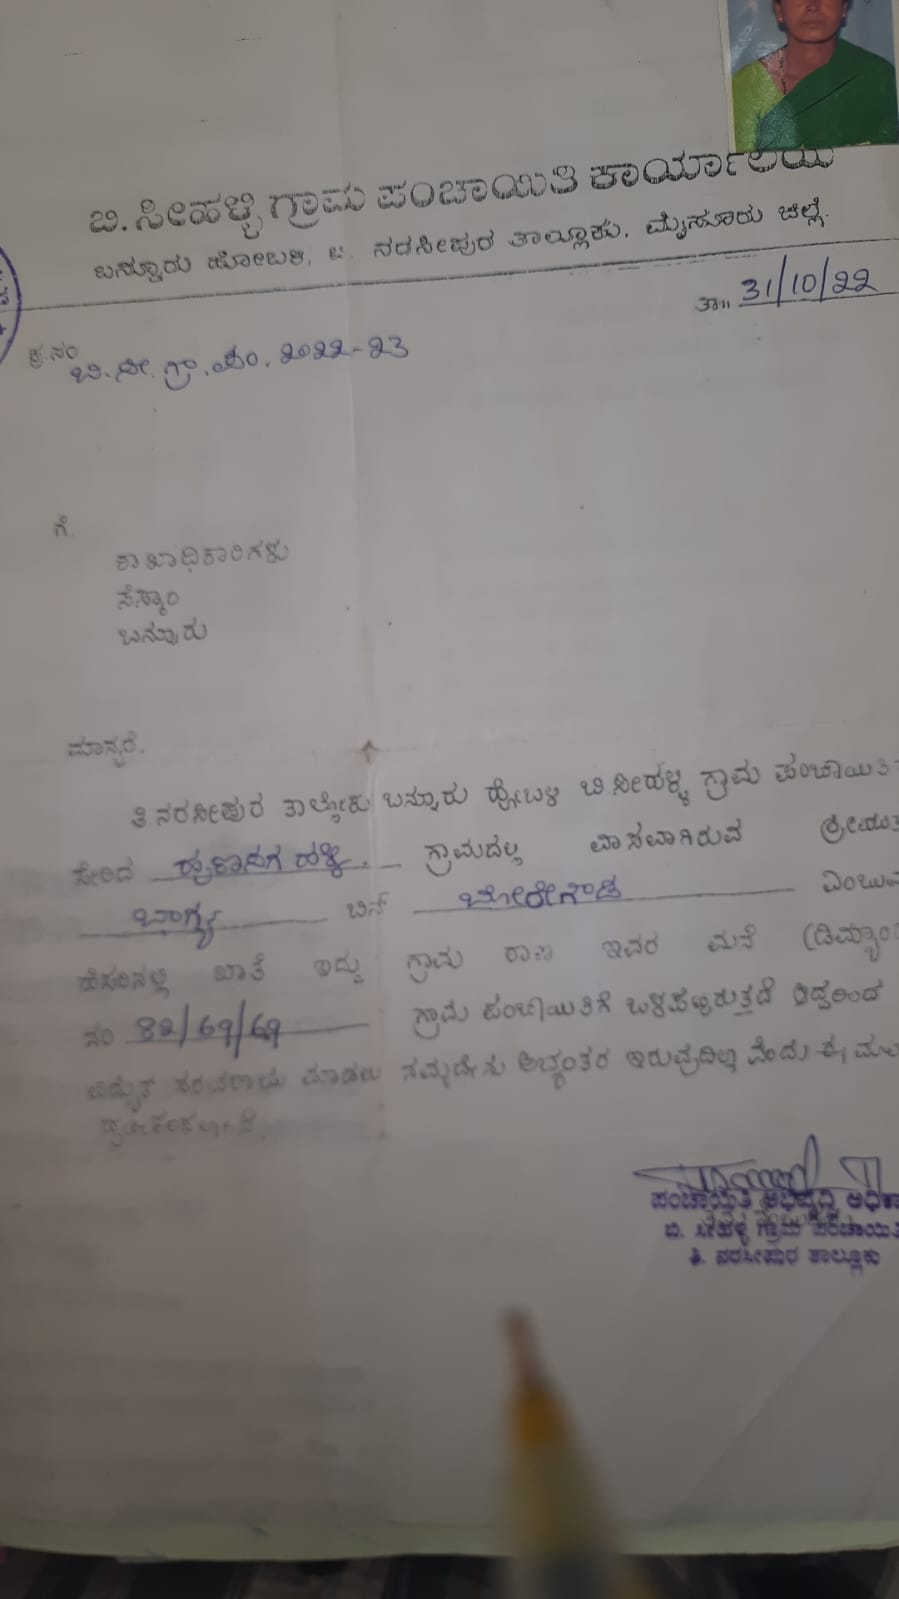 ಬಿ. ಸೀಹಳ್ಳಿ ಗ್ರಾಮ ಪಂಚಾಯಿತಿ ಕಾರ್ಯಾಲಯ
ಬನ್ನೂರು ಹೋಬಳಿ, ಟಿ. ನರಸೀಪುರ ತಾಲ್ಲೂಕು, ಮೈಸೂರು ಜಿಲ್ಲೆ.
ತಾ॥ 31/10/22
ಕ್ರ.ಸಂ
ಬಿ.ಸೀ.ಗ್ರಾ.ಪಂ. 2022-23
ಗೆ.
ಶಾಖಾಧಿಕಾರಿಗಳು
ಸೆಸ್ಕಾಂ
ಬನ್ನೂರು
ಮಾನ್ಯರೆ,
ತಿ.ನರಸೀಪುರ ತಾಲ್ಲೋಕು ಬನ್ನೂರು ಹೋಬಳಿ ಬಿ.ಸೀಹಳ್ಳಿ ಗ್ರಾಮ ಪಂಚಾಯಿತಿ
ಸೇರಿದ ಗ್ರಾಮದಲ್ಲಿ ವಾಸವಾಗಿರುವ
ಭಾಗ್ಯ ಬಿನ್ ಬೋರೇಗೌಡ ಎಂಬುವ
ಹೆಸರಿನಲ್ಲಿ ಖಾತೆ ಇದ್ದು ಗ್ರಾಮ ಠಾಣಾ ಇವರ ಮನೆ
ನಂ 82/69/69 ಗ್ರಾಮ ಪಂಚಾಯಿತಿಗೆ ಒಳಪಟ್ಟಿರುತ್ತದೆ ಇದ್ದರಿಂದ
ವಿದ್ಯುತ್ ಸರಬರಾಜು ಮಾಡಲು ನಮ್ಮದೇನು ಅಭ್ಯಂತರ ಇರುವುದಿಲ್ಲ ವೆಂದು ಈ ಮೂಲ
ಪಂಚಾಯತಿ ಅಭಿವೃದ್ಧಿ
ಬಿ. ಸೀಹಳ್ಳಿ ಗ್ರಾಮ ಪಂಚಾಯಿತಿ
ತಿ. ನರಸೀಪುರ ತಾಲ್ಲೂಕು